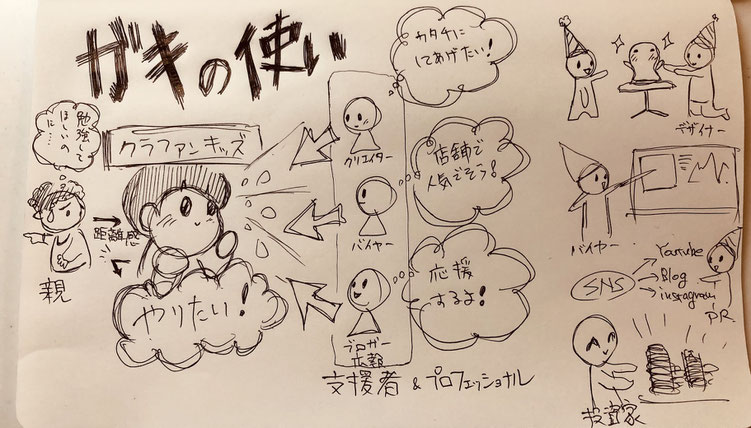 ガキの使い
勉強して
ほしいの
に…
クラファンキッズ
距離感
親
やりたい!
カタチに
してあげたい!
クリエイター
店舗で
人気でそう!
バイヤー
応援
するよ!
ブロガー
広報
支援者 & プロフェッショナル
デザイナー
バイヤー
SNS
Youtube
Blog
instagram
PR
投資家